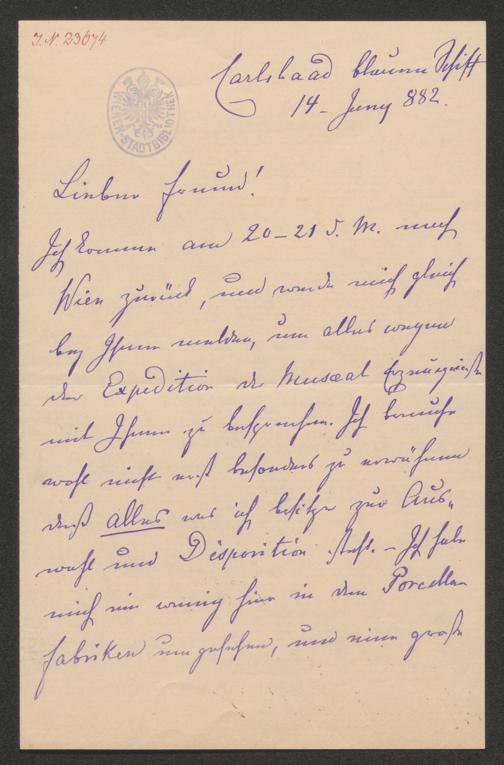 J. N. 23674
WIENER-STADTBIBLIOTHEK
Carlsbaad blaune Schiff
14 - Juny 882.
Lieber Freund!
Ich komme am 20-21 d. M. nach
Wien zurück, und werde mich gleich
bey Ihnen melden, um alles wegen
der Expedition der Musæal
mit Ihnen zu besprechen. Ich brauche
wohl nicht erst besonders zu erwähnen
daß alles was ich besitze zur Aus„
wahl und Disposition steht. – Ich habe
mich ein wenig hier in den Porcellan
fabriken umgesehen, und eine große